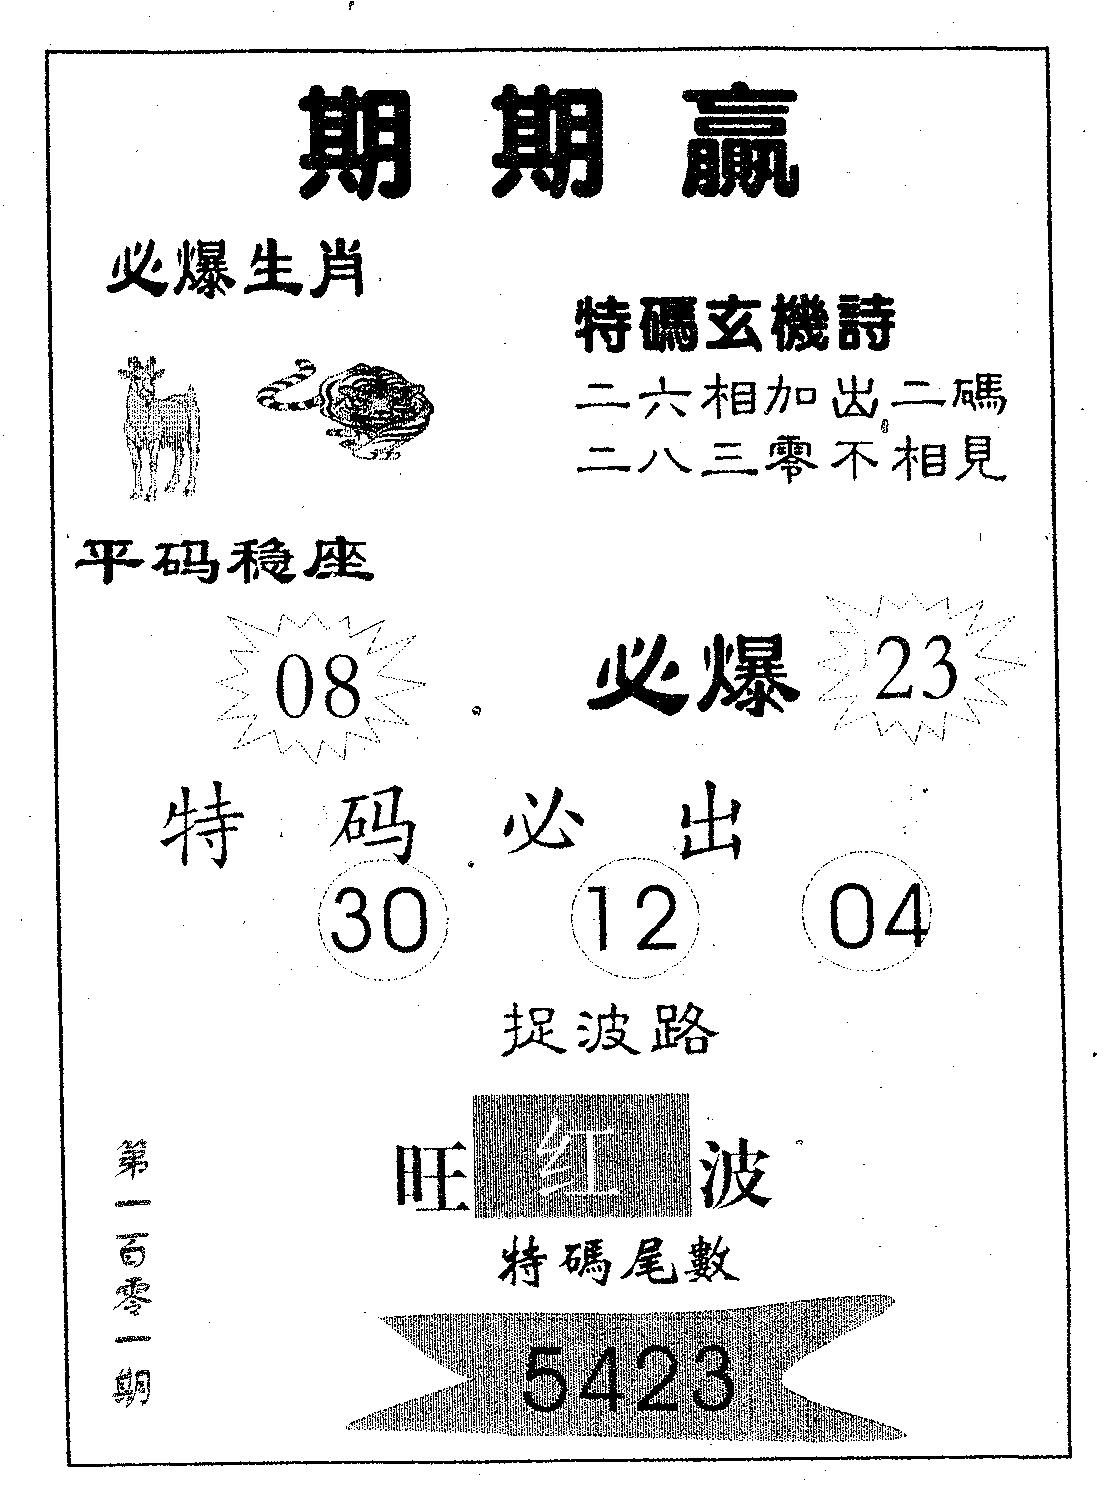 期期赢
必爆生肖
特碼玄機詩
二六相加出二碼
二八三零不相見
平码稳座
08
必爆 23
特码必出
30 12 04
捉波路
旺红波
特碼尾數
5423
第一百零一期